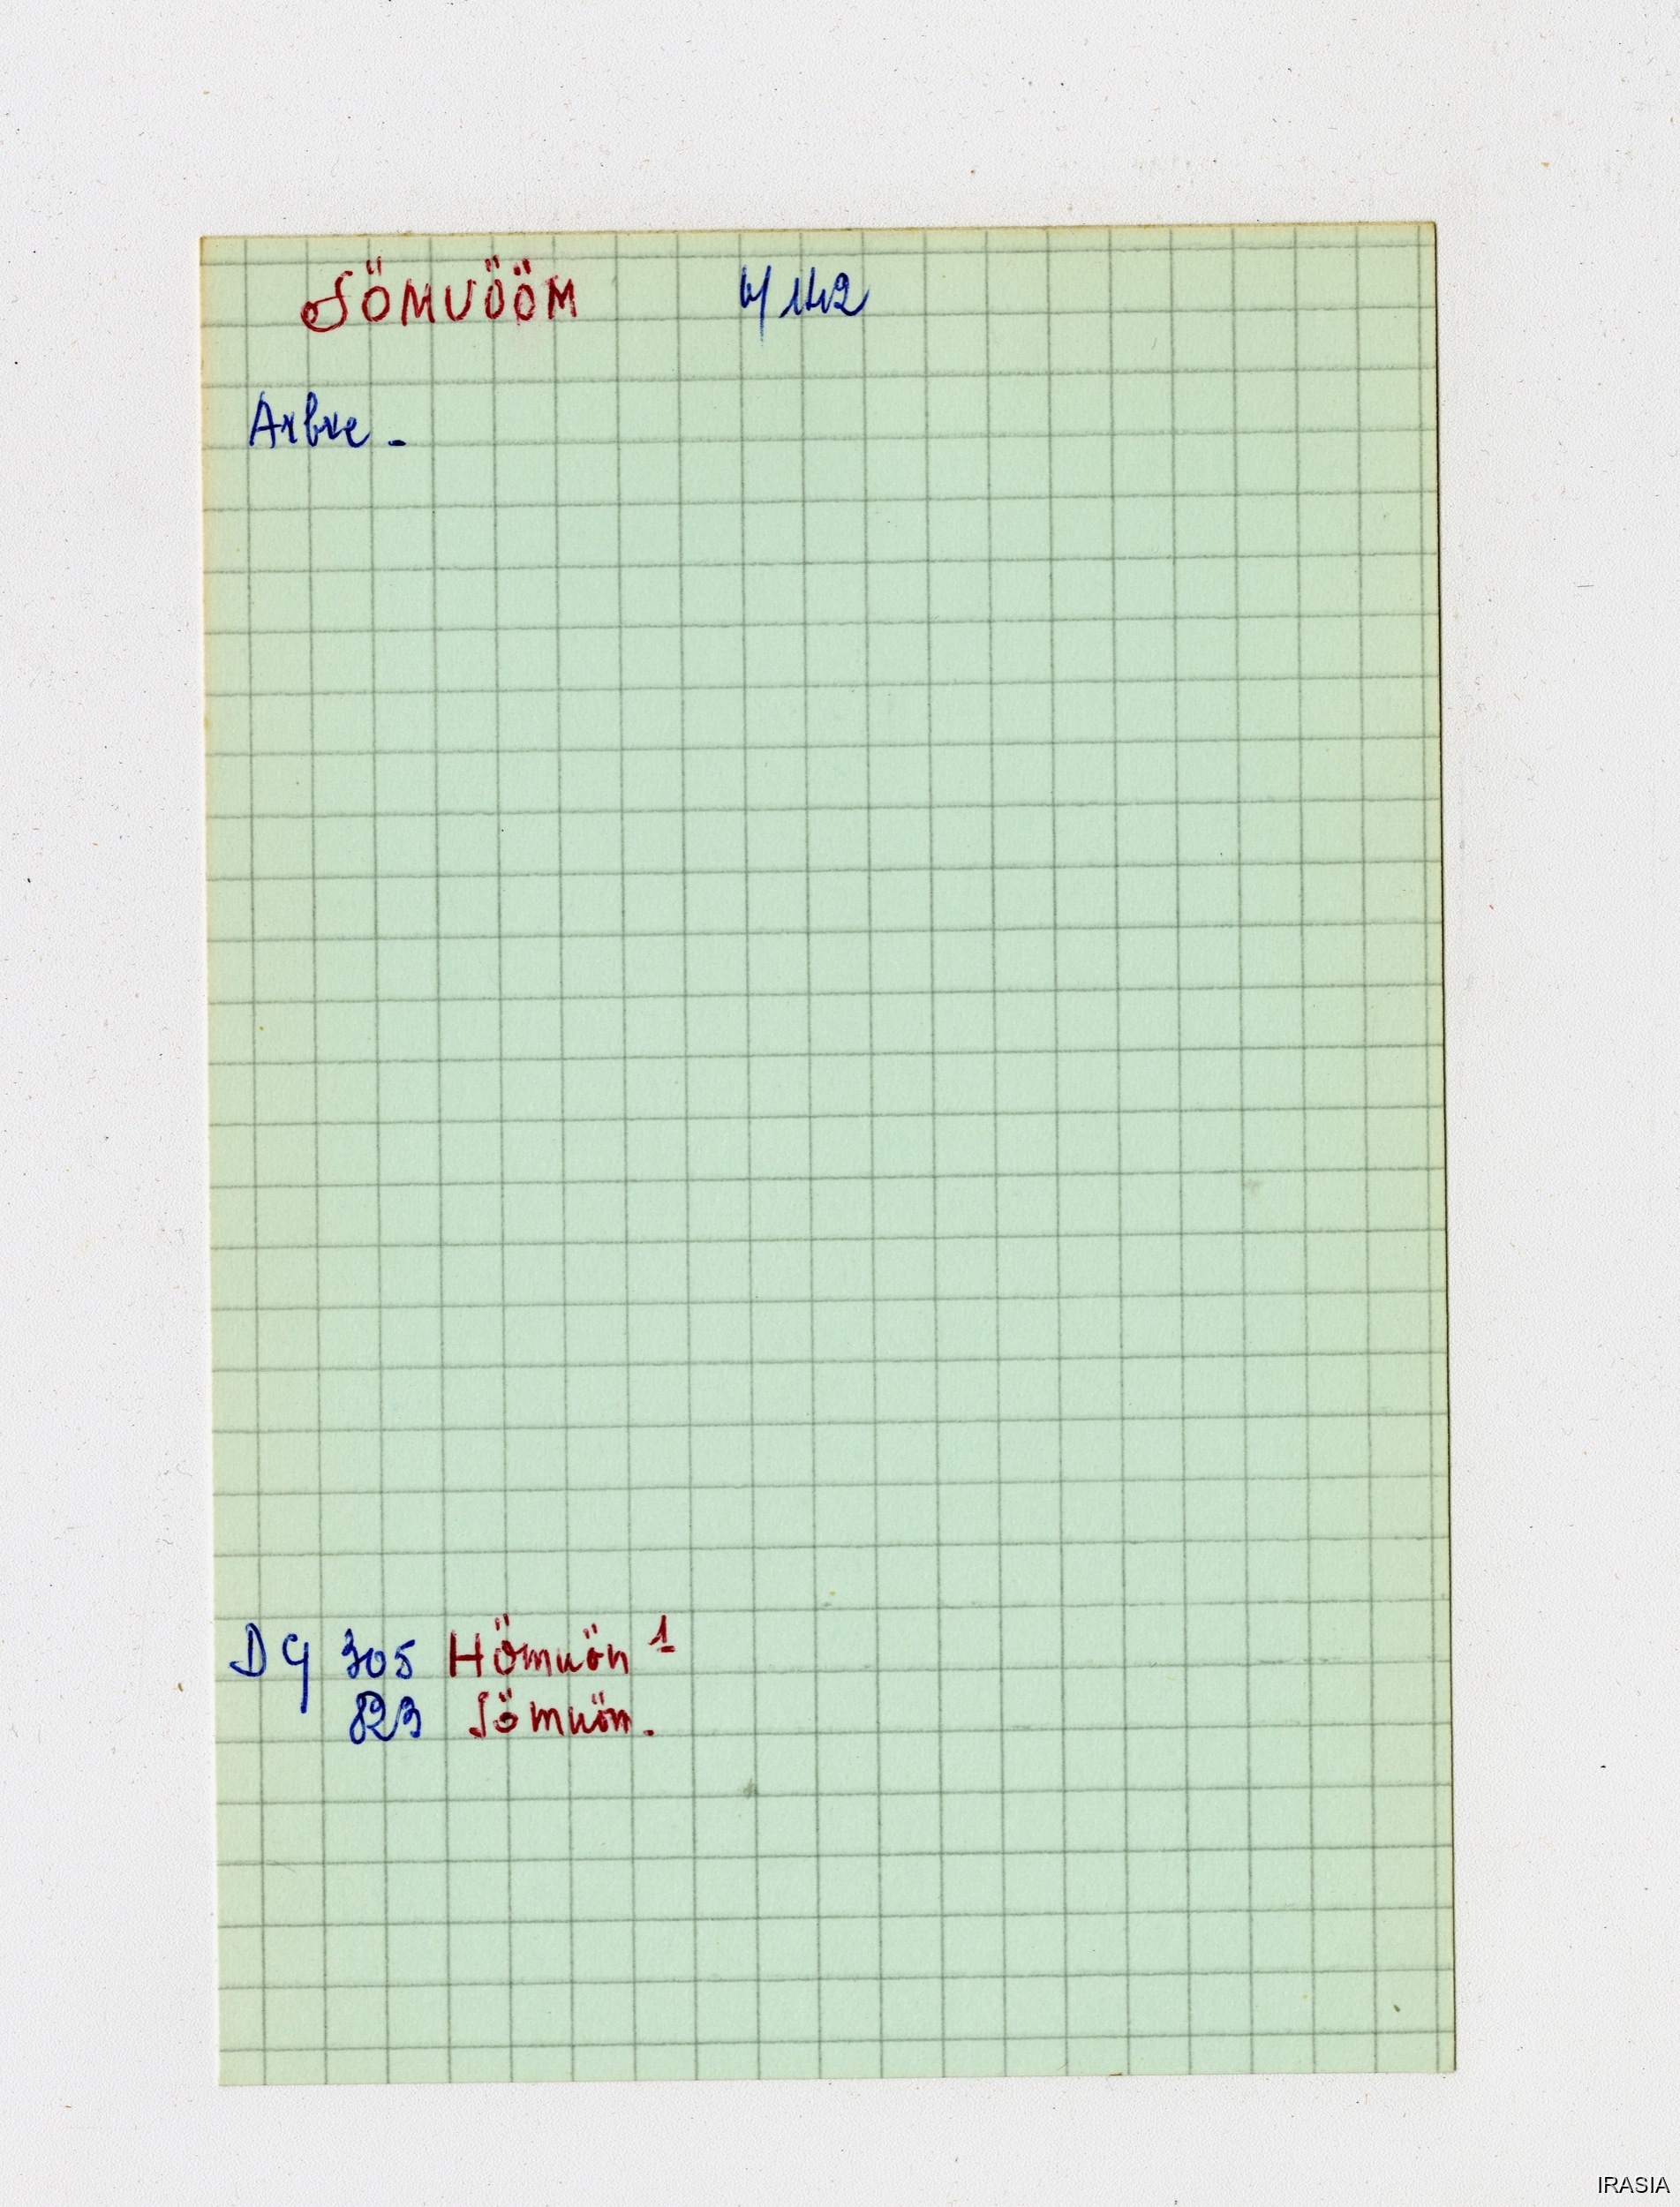 SÖMUÖÖM 4/142
Arbre -
DG 305 Hömuön 1
823 Sömuöm.
IRASIA